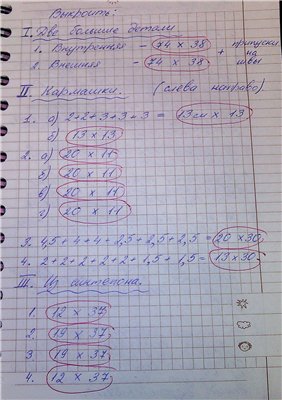 Выкроить:
I. Две большие детали
1. Внутренняя - 74 х 38 + припуски на швы
2. Внешняя - 74 х 38
II. Кармашки. (слева направо)
1. а) 2+2+3+3+3 = 13см х 13
б) 13 х 13
2. а) 20 х 11
б) 20 х 11
в) 20 х 11
г) 20 х 11
3. 4,5 + 4 + 4 + 2,5 + 2,5 + 2,5 = 20 х 30
4. 2 + 2 + 2 + 2 + 2 + 1,5 + 1,5 = 13 х 30
III. Из синтепона.
1. 12 х 37
2. 19 х 37
3 19 х 37
4. 12 х 37